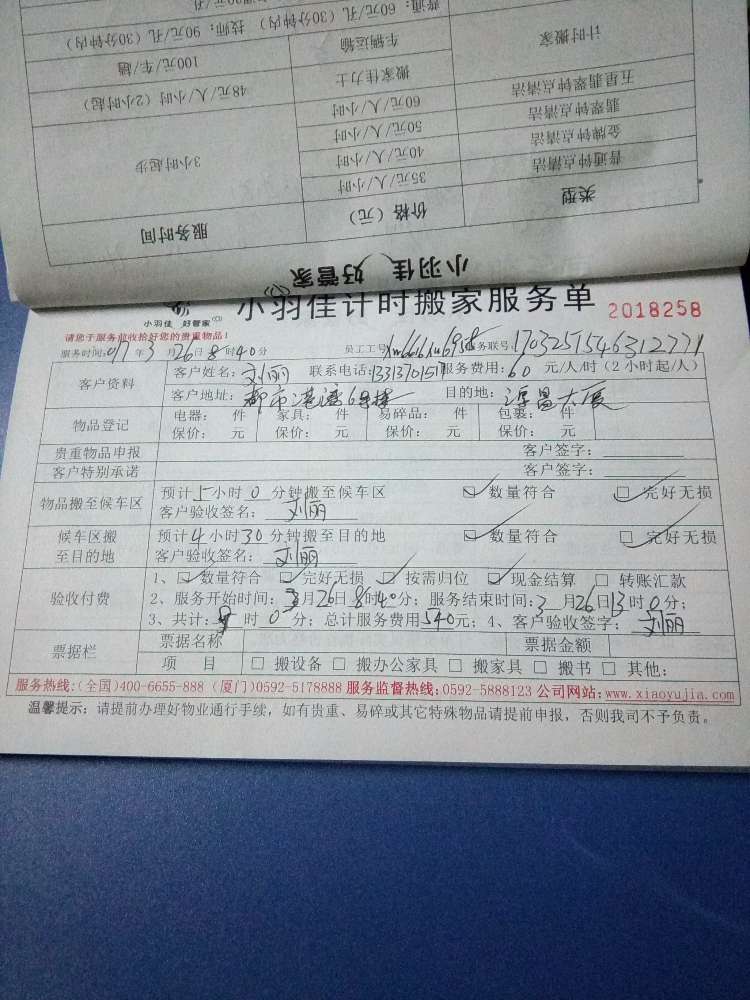 普通：60元/孔（30分钟内） 技师：90元/孔（30分钟内）
计时搬家 车辆运输 100元/车/趟
搬家佳力士 48元/人/小时（2小时起）
五星翡翠钟点清洁 60元/人/小时
翡翠钟点清洁 50元/人/小时
金牌钟点清洁 40元/人/小时 3小时起步
普通钟点清洁 35元/人/小时
类型 价格（元） 服务时间
小羽佳 好管家
小羽佳 好管家
小羽佳计时搬家服务单 2018258
请您于服务前收拾好您的贵重物品！
服务时间：017年3月26日8时40分 员工工号 服务联号：1703251546312771
客户资料 客户姓名：刘丽 联系电话：13313701517 服务费用：60元/人/时（2小时起/人）
客户地址：都市港湾6号楼 目的地：淳昌大厦
物品登记 电器： 件 家具： 件 易碎品： 件 包裹： 件
保价： 元 保价： 元 保价： 元 保价： 元
贵重物品申报 客户签字：
客户特别承诺 客户签字：
物品搬至候车区 预计 小时0分钟搬至候车区 ☑数量符合 □完好无损
客户验收签名：刘丽
候车区搬至目的地 预计4小时30分钟搬至目的地 ☑数量符合 □完好无损
客户验收签名：刘丽
验收付费 1、☑数量符合 ☑完好无损 ☑按需归位 ☑现金结算 □转账汇款
2、服务开始时间：3月26日8时40分；服务结束时间：3月26日13时0分；
3、共计：9时0分；总计服务费用540元；4、客户验收签字：刘丽
票据栏 票据名称 票据金额
项 目 □搬设备 □搬办公家具 □搬家具 □搬书 □其他：
服务热线：(全国)400-6655-888 (厦门)0592-5178888 服务监督热线：0592-5888123 公司网站：www.xiaoyujia.com
温馨提示：请提前办理好物业通行手续，如有贵重、易碎或其它特殊物品请提前申报，否则我司不予负责。